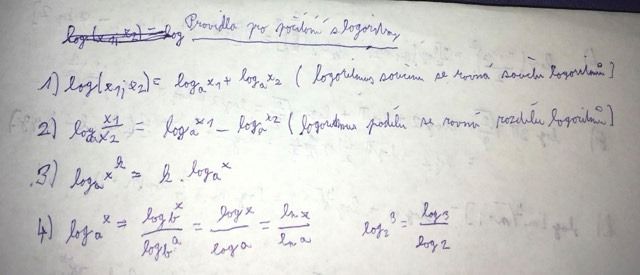 log(x₁, x₂) = log Pravidla pro počítání s logaritmy
1) log(x₁; x₂) = logₐx₁ + logₐx₂ ( logaritmus součinu se rovná součtu logaritmů )
2) logₐ x₁/x₂ = logₐx₁ - logₐx₂ ( logaritmus podílu se rovná rozdílu logaritmů )
3) logₐxᵏ = k . logₐx
4) logₐx = log_b x / log_b a = log x / log a = ln x / ln a   log₂3 = log 3 / log 2